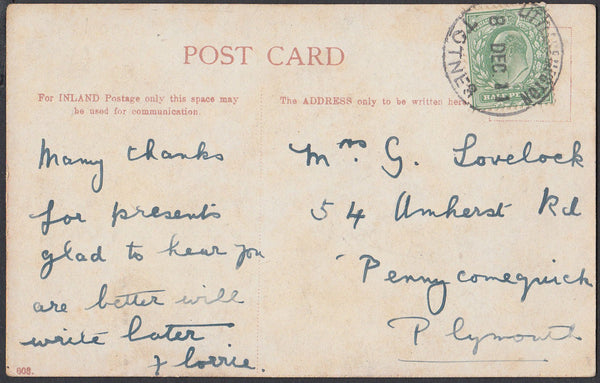 POST CARD
For INLAND Postage only this space may
be used for communication.
The ADDRESS only to be written here
8 DEC 11
TOTNES
HALFPENNY
Many thanks
for presents
glad to hear you
are better will
write later
Florrie.
Mrs G. Lovelock
54 Amherst Rd
Pennycomequick
Plymouth
608.